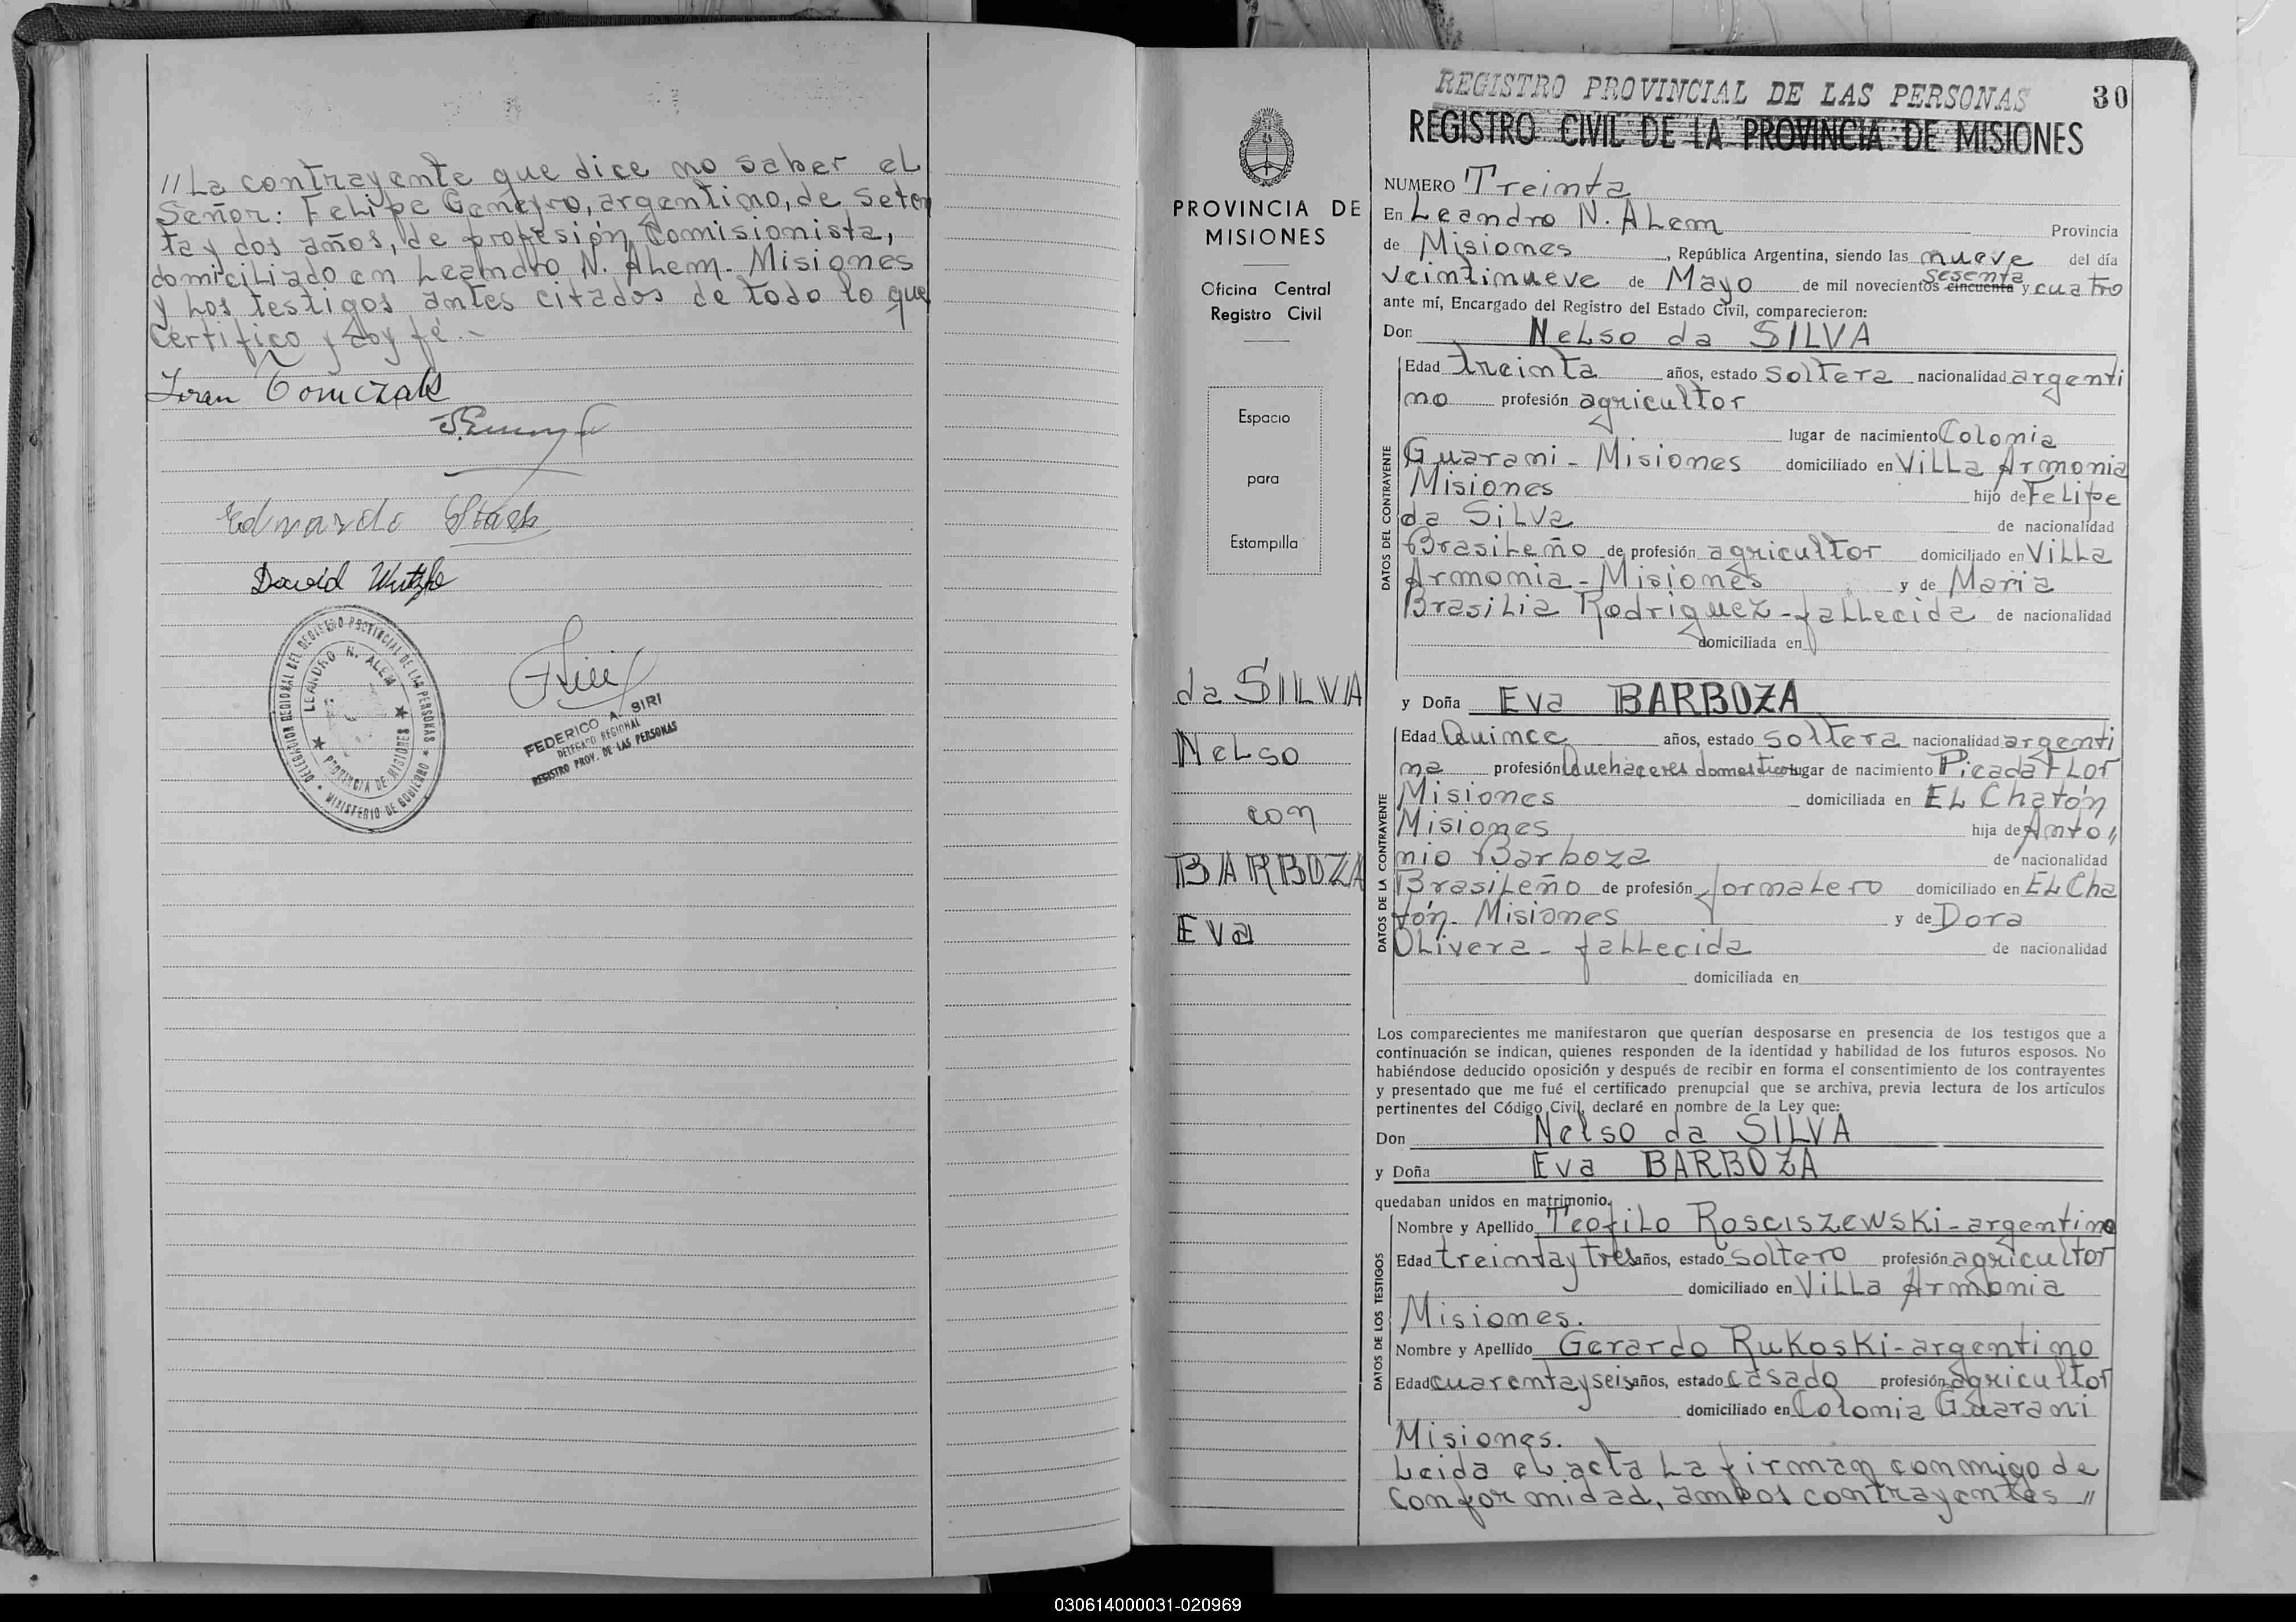 //La contrayente que dice no saber el
Señor: Felipe Geneyro, argentino, de seten
ta y dos años, de profesión Comisionista,
domiciliado en Leandro N. Alem. Misiones
y los testigos antes citados de todo lo que
Certifico y doy fé.-
Eduardo
David
DELEGACION REGIONAL DEL REGISTRO PROVINCIAL DE LAS PERSONAS * MINISTERIO DE GOBIERNO *
LEANDRO N. ALEM
PROVINCIA DE MISIONES
FEDERICO A. SIRI
DELEGADO REGIONAL
REGISTRO PROV. DE LAS PERSONAS
PROVINCIA DE
MISIONES
Oficina Central
Registro Civil
Espacio
para
Estampilla
da SILVA
Nelso
con
BARBOZA
Eva
REGISTRO PROVINCIAL DE LAS PERSONAS
30
REGISTRO CIVIL DE LA PROVINCIA DE MISIONES
NUMERO Treinta
En Leandro N. Alem Provincia
de Misiones, República Argentina, siendo las nueve del día
sesenta
veintinueve de Mayo de mil novecientos cincuenta y cuatro
ante mí, Encargado del Registro del Estado Civil, comparecieron:
Don Nelso da SILVA
DATOS DEL CONTRAYENTE
Edad treinta años, estado soltera nacionalidad argenti
no profesión agricultor
lugar de nacimiento Colonia
Guarani - Misiones domiciliado en Villa Armonia
Misiones hijo de Felipe
da Silva de nacionalidad
Brasileño de profesión agricultor domiciliado en Villa
Armonia - Misiones y de Maria
Brasilia Rodriguez - fallecida de nacionalidad
domiciliada en
y Doña Eva BARBOZA
DATOS DE LA CONTRAYENTE
Edad Quince años, estado soltera nacionalidad argenti
na profesión Quehaceres domesticos lugar de nacimiento Picada Flor
Misiones domiciliada en El Chatón
Misiones hija de Anto//
nio Barboza de nacionalidad
Brasileño de profesión Jornalero domiciliado en El Cha
tón. Misiones y de Dora
Olivera - fallecida de nacionalidad
domiciliada en
Los comparecientes me manifestaron que querían desposarse en presencia de los testigos que a
continuación se indican, quienes responden de la identidad y habilidad de los futuros esposos. No
habiéndose deducido oposición y después de recibir en forma el consentimiento de los contrayentes
y presentado que me fué el certificado prenupcial que se archiva, previa lectura de los artículos
pertinentes del Código Civil, declaré en nombre de la Ley que:
Don Nelso da SILVA
y Doña Eva BARBOZA
quedaban unidos en matrimonio.
DATOS DE LOS TESTIGOS
Nombre y Apellido Teofilo Rosciszewski - argentino
Edad treinta y tres años, estado soltero profesión agricultor
domiciliado en Villa Armonia
Misiones.
Nombre y Apellido Gerardo Rukoski - argentino
Edad cuarenta y seis años, estado casado profesión agricultor
domiciliado en Colonia Guarani
Misiones.
Leida el acta la firman conmigo de
conformidad, ambos contrayentes //
030614000031-020969